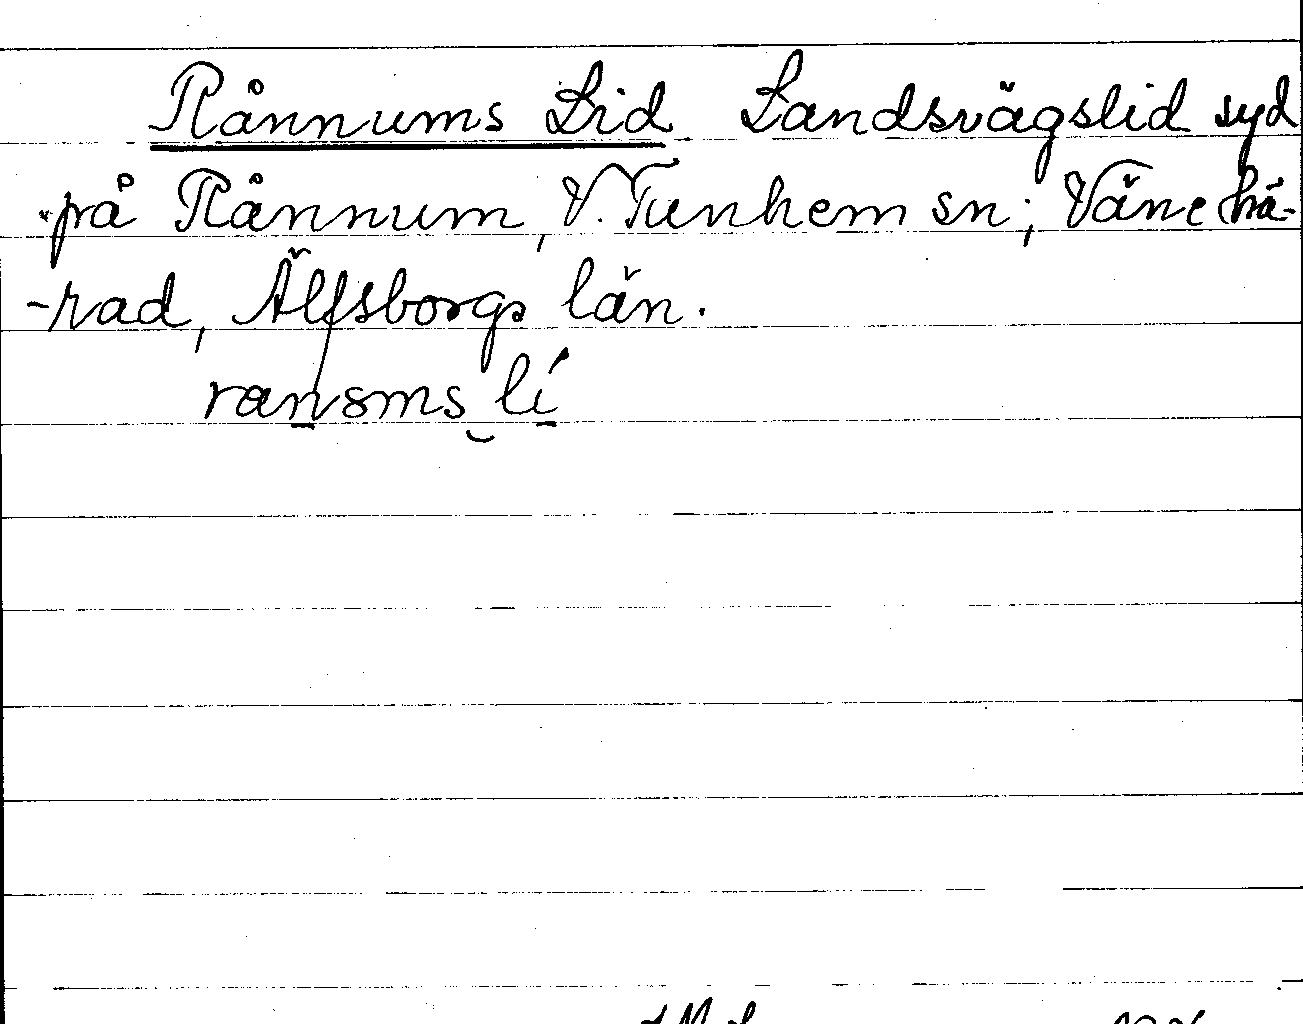 Rånnums Lid Landsvägslid syd
på Rånnum, V. Tunhem sn; Väne hä-
-rad, Älfsborgs län.